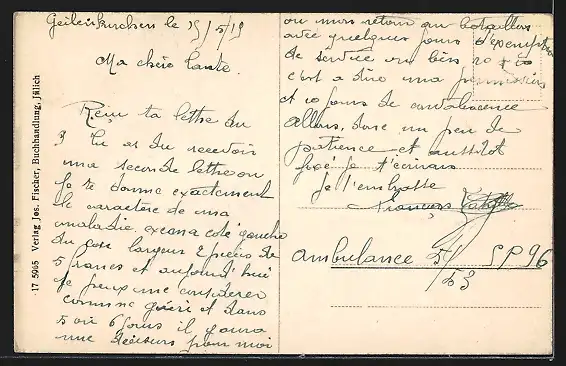 Geilenkirchen le 15/5/19
Ma chère tante.
Reçu ta lettre du
9 tu as du recevoir
une seconde lettre ou
je te donne exactement
le caractère de ma
maladie. eczena coté gauche
du cou largeur 2 pièces de
5 francs et aujourd'hui
je peux me considerer
comme guéri et dans
5 ou 6 jours il y aura
une decision pour moi
ou mon retour au bataillon
avec quelques jours d'exemption
de service ou bien 20 + 10
c'est a dire une permission
et 10 jours de convalescence
Allons, donc un peu de
patience et aussitôt
fixé je t'écrirais
Je t'embrasse
François
Ambulance 5/53 SP 96
17 5965 Verlag Jos. Fischer, Buchhandlung, Jülich